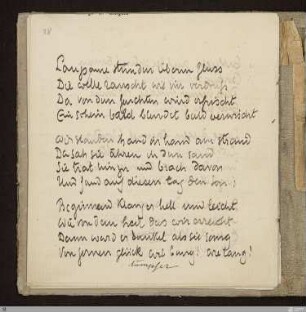 28
Langsame stunden überm fluss
Die welle rauscht wie im verdruss
Da von dem feuchten wind erfrischt
Ein schein bald blendet bald verwischt
Wir standen hand in hand am strand
Da sah sie ähren in dem sand
Sie trat hinzu und brach davon
Und fand auf diesen tag den ton:
Beginnend klang er hell und leicht
Wie von dem ziel das wir erreicht
Dann ward er dunkel als sie sang
Vom fernen glück wie bang! wie lang!
dumpfer